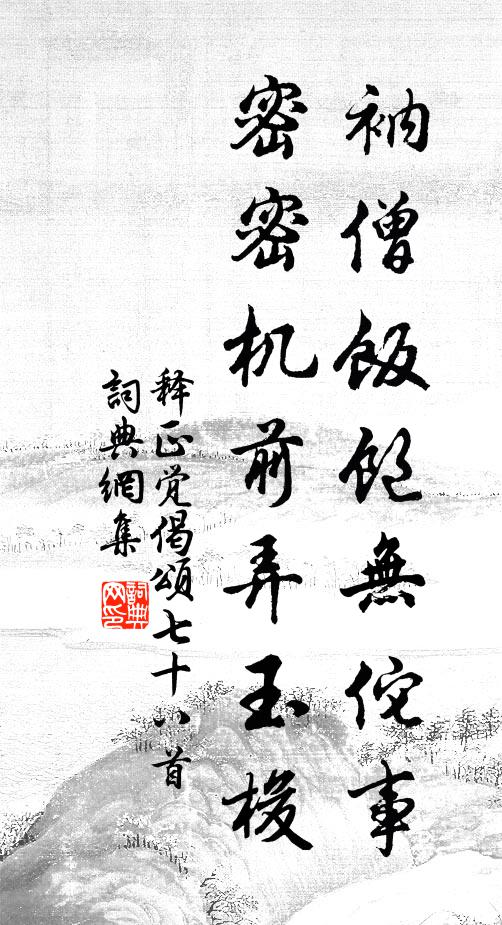 衲僧飯飽無侘事
密密机前弄玉梭
释正觉偈頌七十八首
詞典網集
詞典
网印